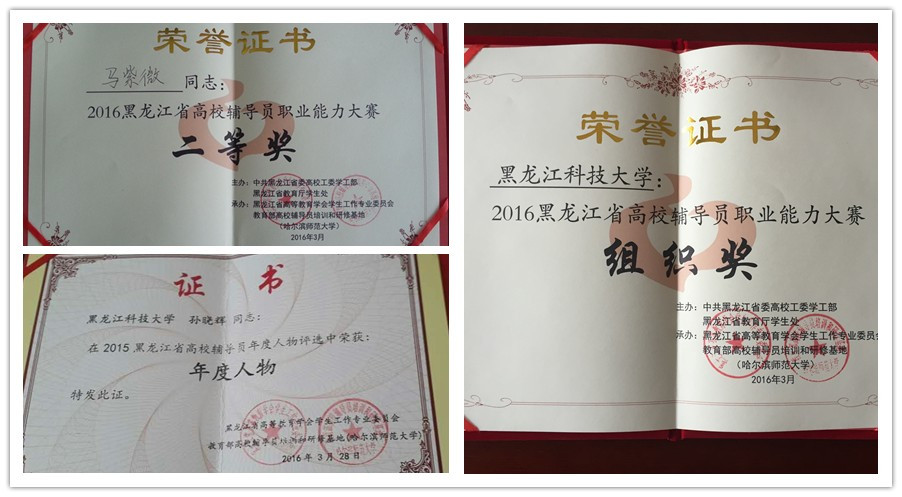 荣誉证书
马紫微 同志：
2016黑龙江省高校辅导员职业能力大赛
二等奖
主办：中共黑龙江省委高校工委学工部
黑龙江省教育厅学生处
承办：黑龙江省高等教育学会学生工作专业委员会
教育部高校辅导员培训和研修基地
（哈尔滨师范大学）
2016年3月
证 书
黑龙江科技大学 孙晓辉 同志：
在2015黑龙江省高校辅导员年度人物评选中荣获：
年度人物
特发此证。
黑龙江省高等教育学会学生工作专业委员会
教育部高校辅导员培训和研修基地(哈尔滨师范大学)
2016年3月28日
荣誉证书
黑龙江科技大学：
2016黑龙江省高校辅导员职业能力大赛
组织奖
主办：中共黑龙江省委高校工委学工部
黑龙江省教育厅学生处
承办：黑龙江省高等教育学会学生工作专业委员会
教育部高校辅导员培训和研修基地
（哈尔滨师范大学）
2016年3月